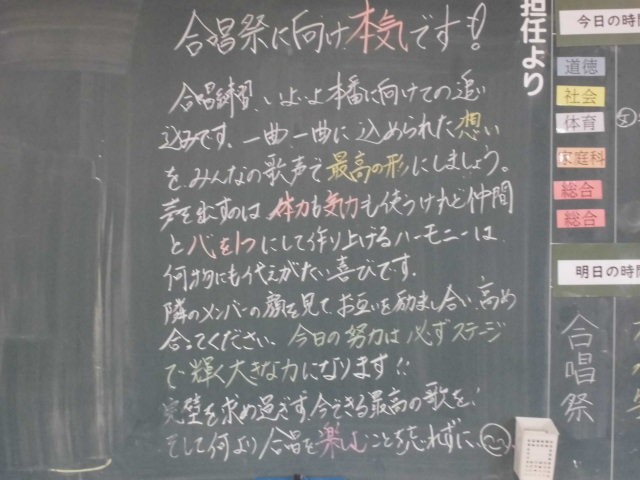 合唱祭に向け本気です!
合唱練習、いよいよ本番に向けての追い
込みです。一曲一曲に込められた想い
を、みんなの歌声で最高の形にしましょう。
声を出すのは、体力も気力も使うけれど仲間
と心を1つにして作り上げるハーモニーは、
何物にも代えがたい喜びです。
隣のメンバーの顔を見て、お互いを励まし合い、高め
合ってください。今日の努力は必ずステージ
で輝く大きな力になります!!
完璧を求め過ぎず、今できる最高の歌を!
そして何より合唱を楽しむことを忘れずに、
担任より
今日の時間
道徳
社会
体育
家庭科
総合
総合
明日の時間
合唱祭